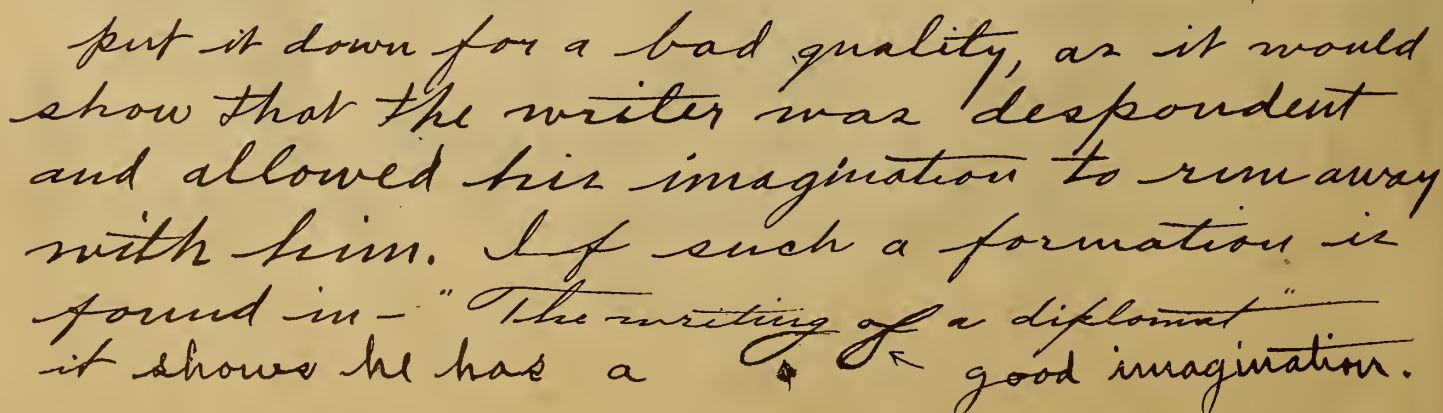 put it down for a bad quality, as it would
show that the writer was despondent
and allowed his imagination to run away
with him. If such a formation is
found in - "The writing of a diplomat"
it shows he has a good imagination.